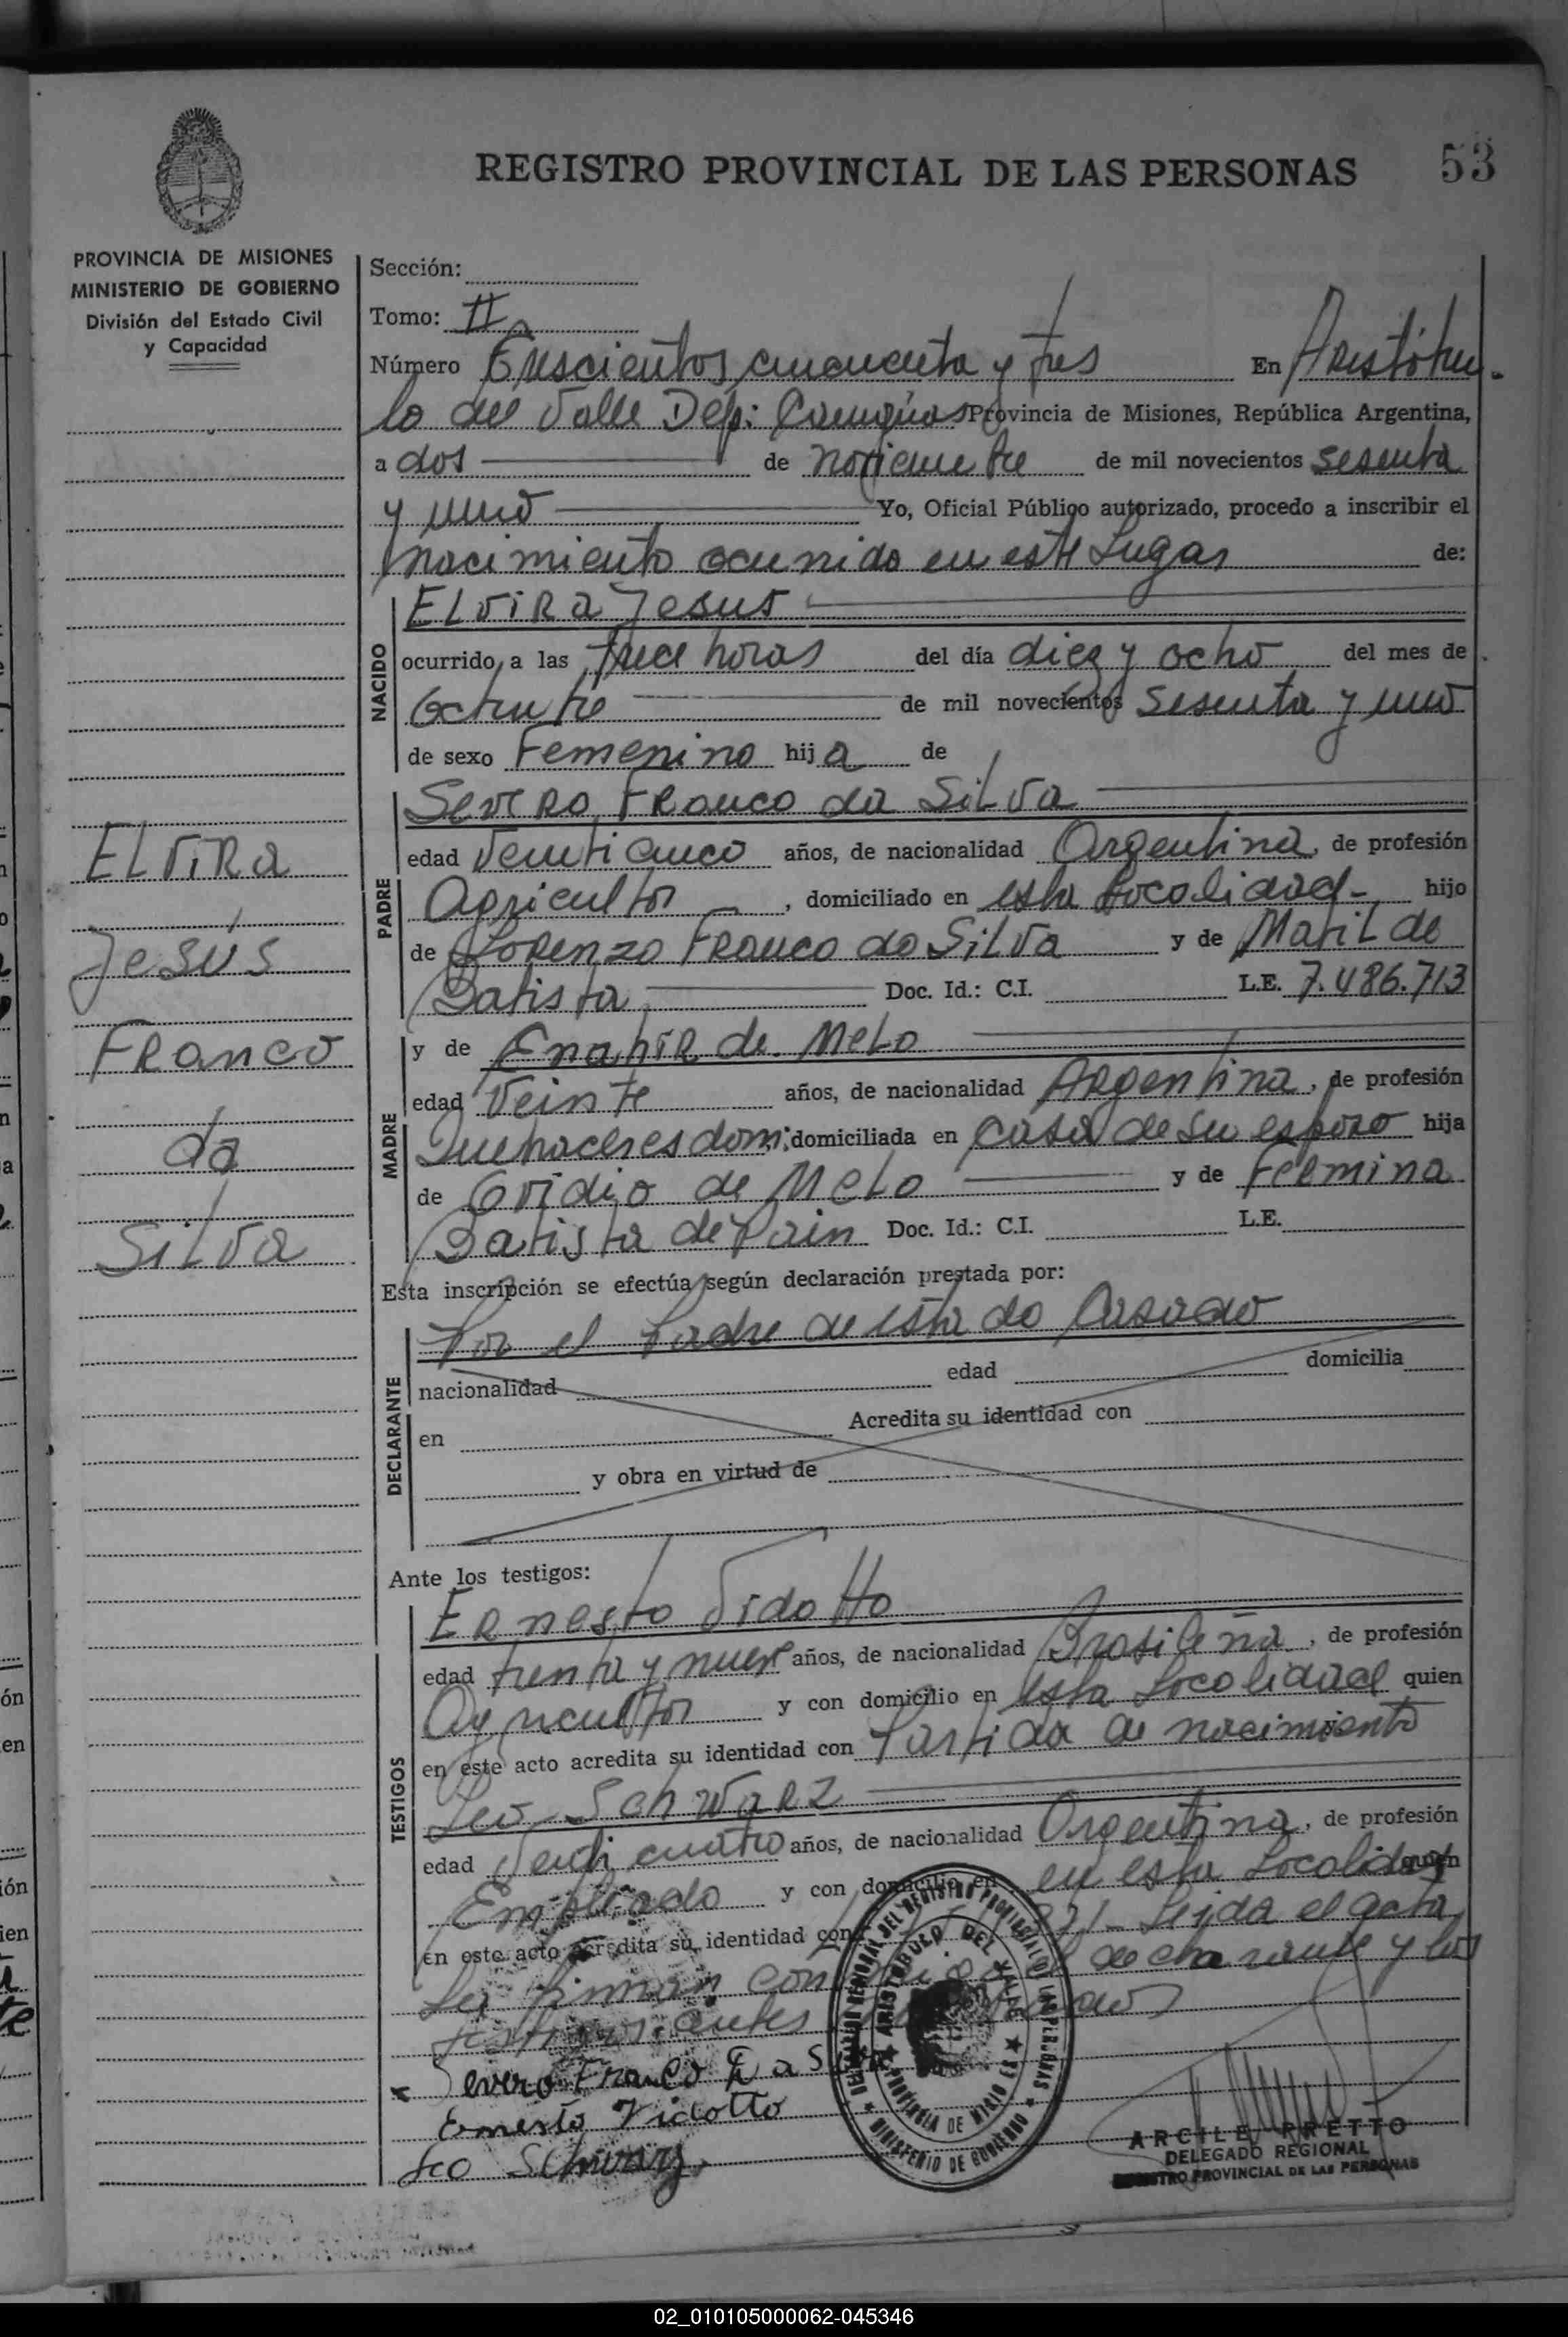 REGISTRO PROVINCIAL DE LAS PERSONAS 53
PROVINCIA DE MISIONES
MINISTERIO DE GOBIERNO
División del Estado Civil
y Capacidad
Sección:
Tomo: II
Número Trescientos cincuenta y tres En Aristóbu-
lo del Valle Dep: Cainguas Provincia de Misiones, República Argentina,
a dos de noviembre de mil novecientos sesenta
y uno Yo, Oficial Público autorizado, procedo a inscribir el
nacimiento ocurrido en este Lugar de:
NACIDO
ELVIRA Jesus
ocurrido a las trece horas del día diez y ocho del mes de
Octubre de mil novecientos sesenta y uno
de sexo Femenino hija de
PADRE
Severo Franco da Silva
edad Veinticinco años, de nacionalidad Argentina, de profesión
Agricultor, domiciliado en esta Localidad- hijo
de Lorenzo Franco do Silva y de Matilde
Batista Doc. Id.: C.I. L.E. 7.486.713
MADRE
y de Enahir de Melo
edad Veinte años, de nacionalidad Argentina, de profesión
Quehaceres dom: domiciliada en casa de su esposo hija
de Ovidio de Melo y de Felmina
Batista de Pain Doc. Id.: C.I. L.E.
Esta inscripción se efectúa según declaración prestada por:
DECLARANTE
Por el Padre de estado Casado
nacionalidad edad domicilia
en Acredita su identidad con
y obra en virtud de
Ante los testigos:
TESTIGOS
Ernesto Vidotto
edad trenta y nueve años, de nacionalidad Brasileña, de profesión
Agricultor y con domicilio en esta Localidad quien
en este acto acredita su identidad con Partida de nacimiento
Leo Schwarz
edad Veinticuatro años, de nacionalidad Argentina, de profesión
Empleado y con domicilio en en esta Localidad quien
en este acto acredita su identidad con Leida el acta
La firman conmigo el declarante y los
testigos antes
Severo Franco Da Silva
Ernesto Vidotto
Leo Schwarz
ARISTOBULO DEL VALLE
PROVINCIA DE MISIONES
MINISTERIO DE GOBIERNO
ARCILE PRETTO
DELEGADO REGIONAL
REGISTRO PROVINCIAL DE LAS PERSONAS
ELVIRA
Jesús
Franco
da
Silva
02_010105000062-045346